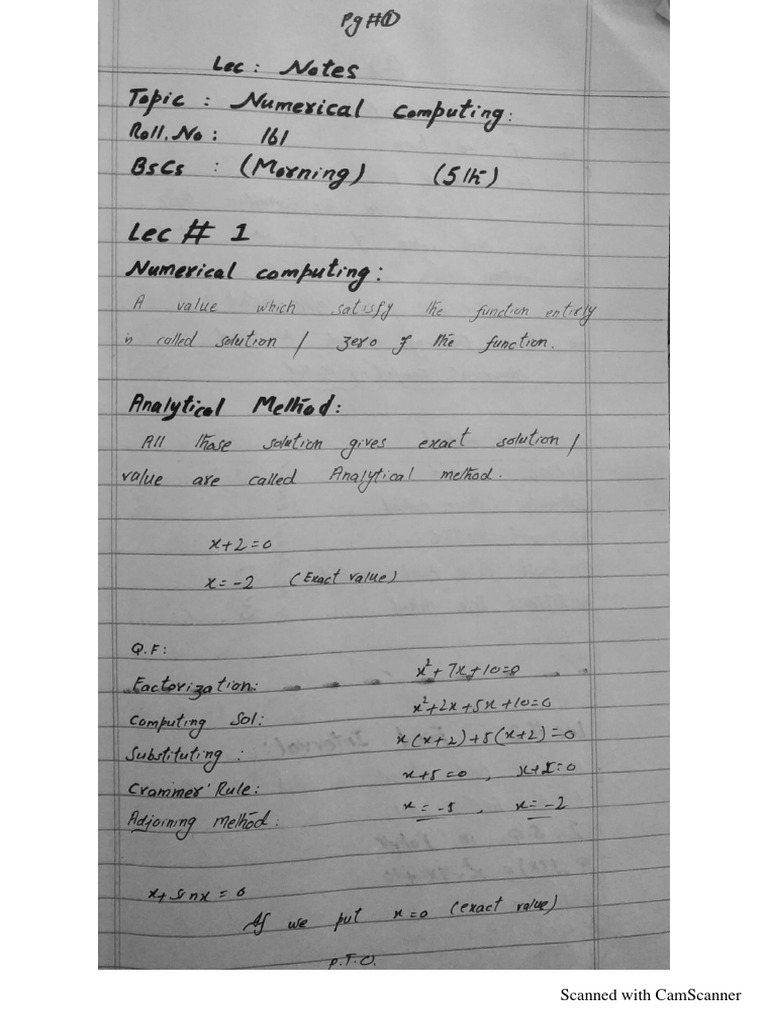 Pg#①
Lec: Notes
Topic: Numerical Computing:
Roll.No: 161
BsCs: (Morning) (5th)
Lec # 1
Numerical computing:
A value which satisfy the function entirly
is called solution / zero of the function.
Analytical Method:
All those solution gives exact solution /
value are called Analytical method.
x+2=0
x=-2 (Exact value)
Q.F:
Factorization: x²+7x+10=0
Computing Sol: x²+2x+5x+10=0
Substituting: x(x+2)+5(x+2)=0
Crammer' Rule: x+5=0, x+2=0
Adjoining method: x=-5, x=-2
x+sinx=0
If we put x=0 (exact value)
P.T.O.
Scanned with CamScanner